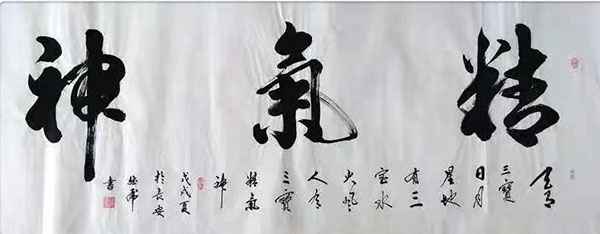 精氣神
天有
三寶
日月
星地
有三
宝水
火風
人有
三寶
精氣
神
戊戌夏
於長安
書